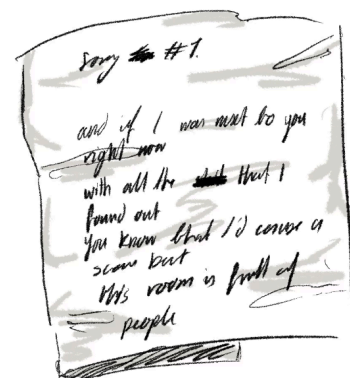 Song #1.
and if I was next to you
right now
with all the that I
found out
you know that I'd cause a
scene but
this room is full of
people